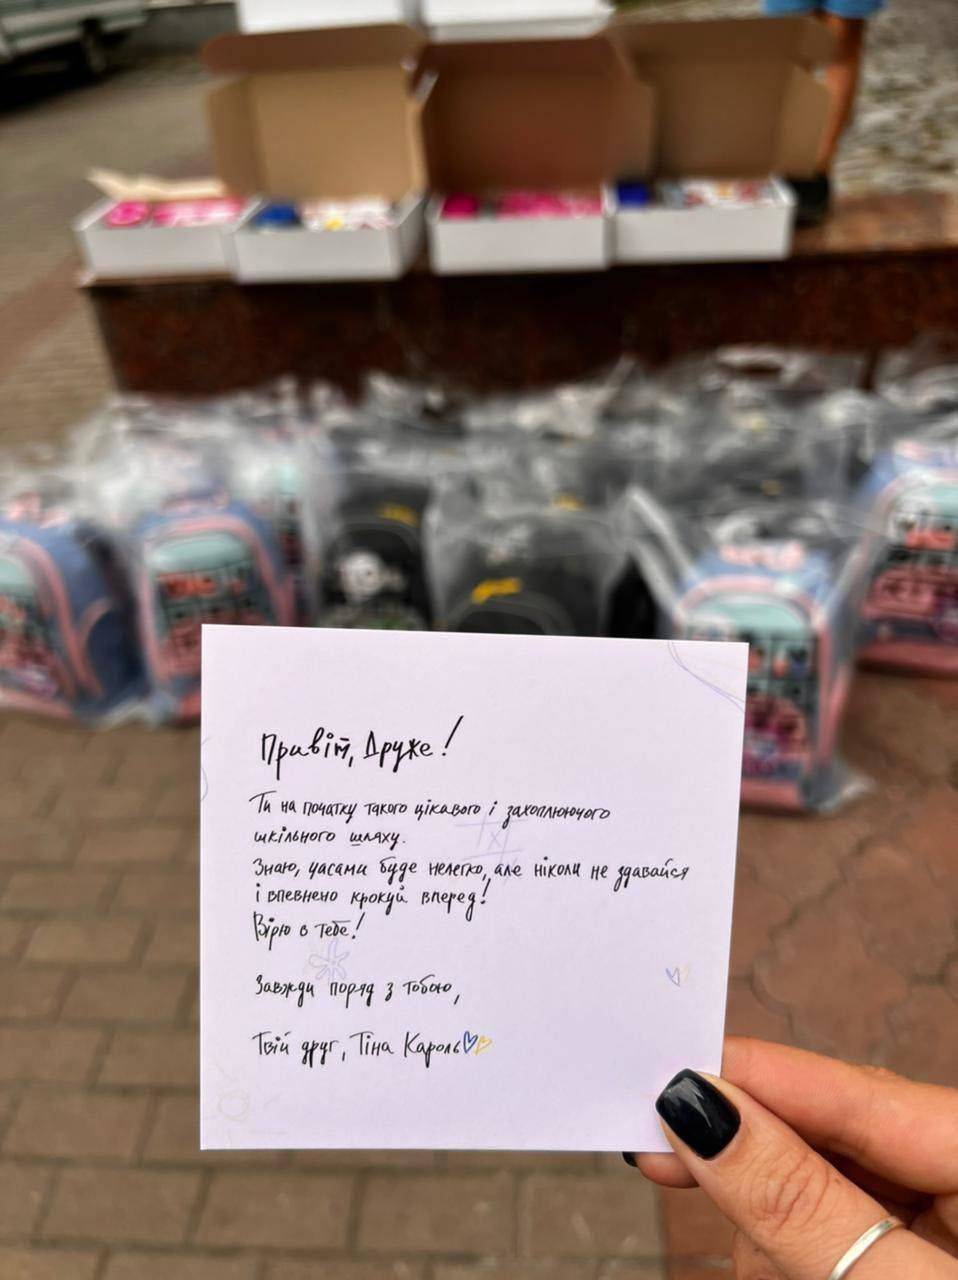 Привіт, Друже!
Ти на початку такого цікавого і захоплюючого
шкільного шляху.
Знаю, часами буде нелегко, але ніколи не здавайся
і впевнено крокуй вперед!
Вірю в тебе!
Завжди поряд з тобою,
Твій друг, Тіна Кароль